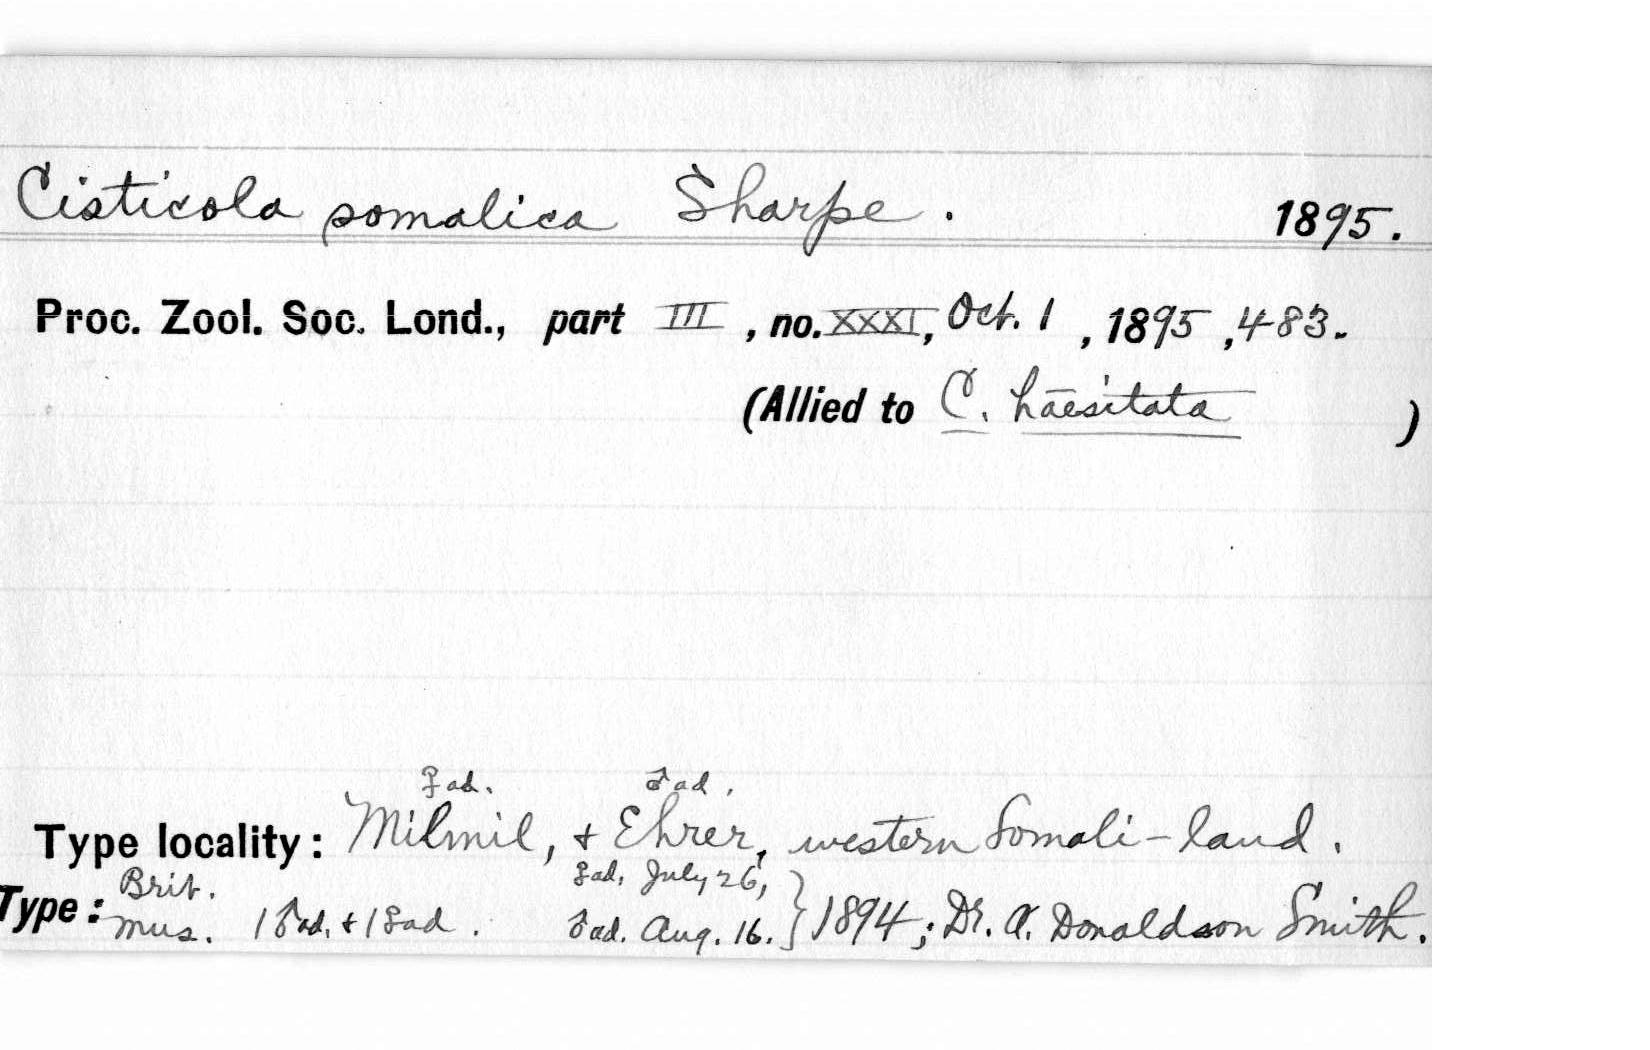 Cisticola somalica Sharpe. 1895.
Proc. Zool. Soc. Lond., part III, no. XXXI, Oct. 1, 1895, 483.
(Allied to C. haesitata)
♀ad. ♂ad.
Type locality: Milmil, + Ehrer, western Somali-land.
Brit. ♀ad. July 26,
Type: mus. 1 ♂ad. + 1 ♀ad. ♂ad. Aug. 16. } 1894; Dr. A. Donaldson Smith.